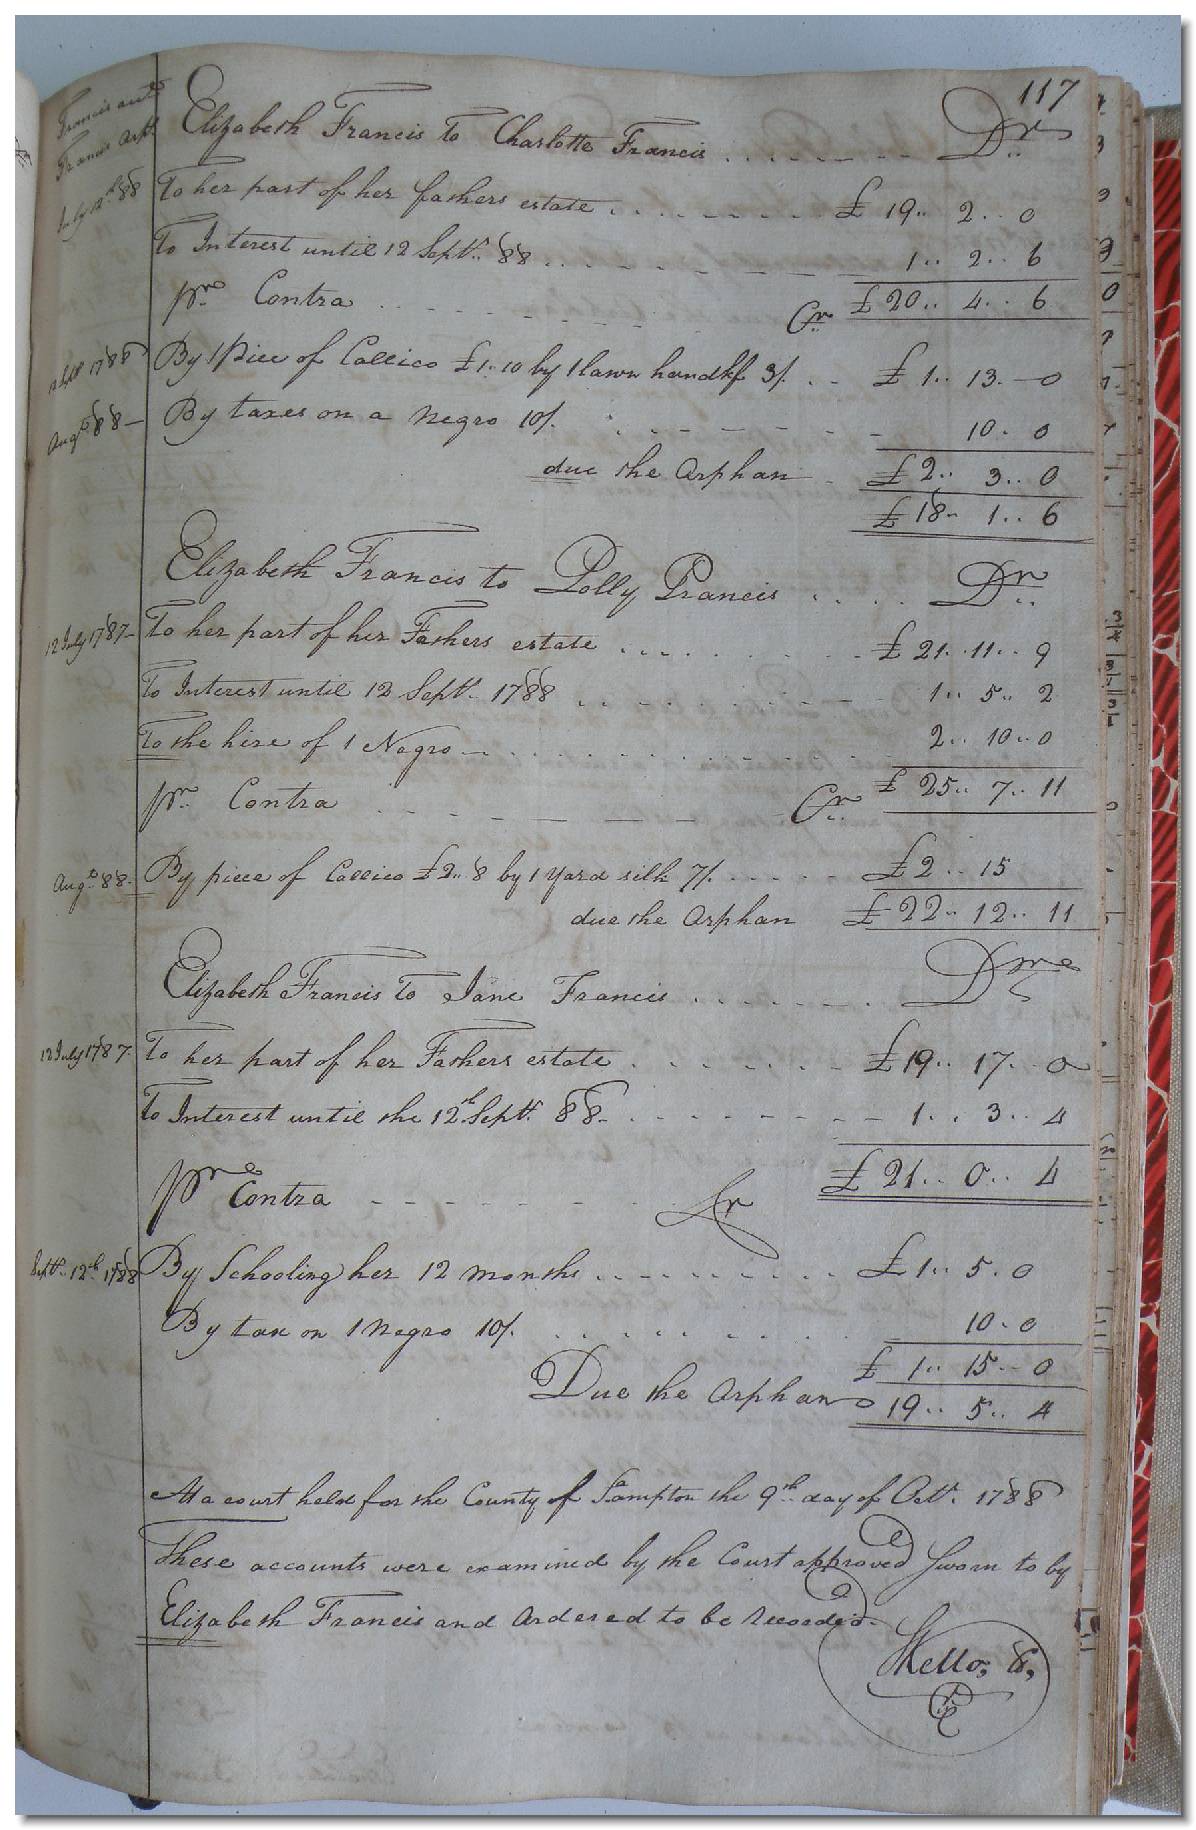 117
Francis acct
Francis Orph.
Elizabeth Francis to Charlotte Francis ........ Dr.
July 12th 88 To her part of her fathers estate ........ £ 19.. 2.. 0
To Interest until 12 Septr. 88 ........ 1.. 2.. 6
pr. Contra ........ Cr. £ 20.. 4.. 6
Sept 1788 By 1 Piece of Callico £1..10 by 1 lawn handkf 3/. .. £ 1.. 13.—0
Augt 88— By taxes on a Negro 10/. ........ 10. 0
due the Orphan £ 2.. 3.. 0
£ 18.. 1.. 6
Elizabeth Francis to Polly Francis .... Dr.
12 July 1787— To her part of her Fathers estate ........ £ 21..11.. 9
To Interest until 12 Septr. 1788 ........ 1.. 5.. 2
To the hire of 1 Negro ........ 2.. 10..0
pr. Contra ........ Cr. £ 25.. 7.. 11
Augt 88. By piece of Callico £2..8 by 1 Yard silk 7/. ..... £2.. 15
due the Orphan £ 22.. 12.. 11
Elizabeth Francis to Jane Francis ........ Dr.
12 July 1787. To her part of her Fathers estate ........ £ 19.. 17. 0
To Interest until the 12th. Septr. 88. ........ 1.. 3.. 4
pr Contra ........ Cr £ 21.. 0.. 4
Septr. 12th 1788 By Schooling her 12 months ........ £ 1.. 5. 0
By tax on 1 Negro 10/. ........ 10. 0
£ 1.. 15.—0
Due the Orphan 19.. 5.. 4
At a court held for the County of S'ampton the 9th. day of Octr. 1788
These accounts were examined by the Court approved Sworn to by
Elizabeth Francis and Ordered to be recorded.
Kello,